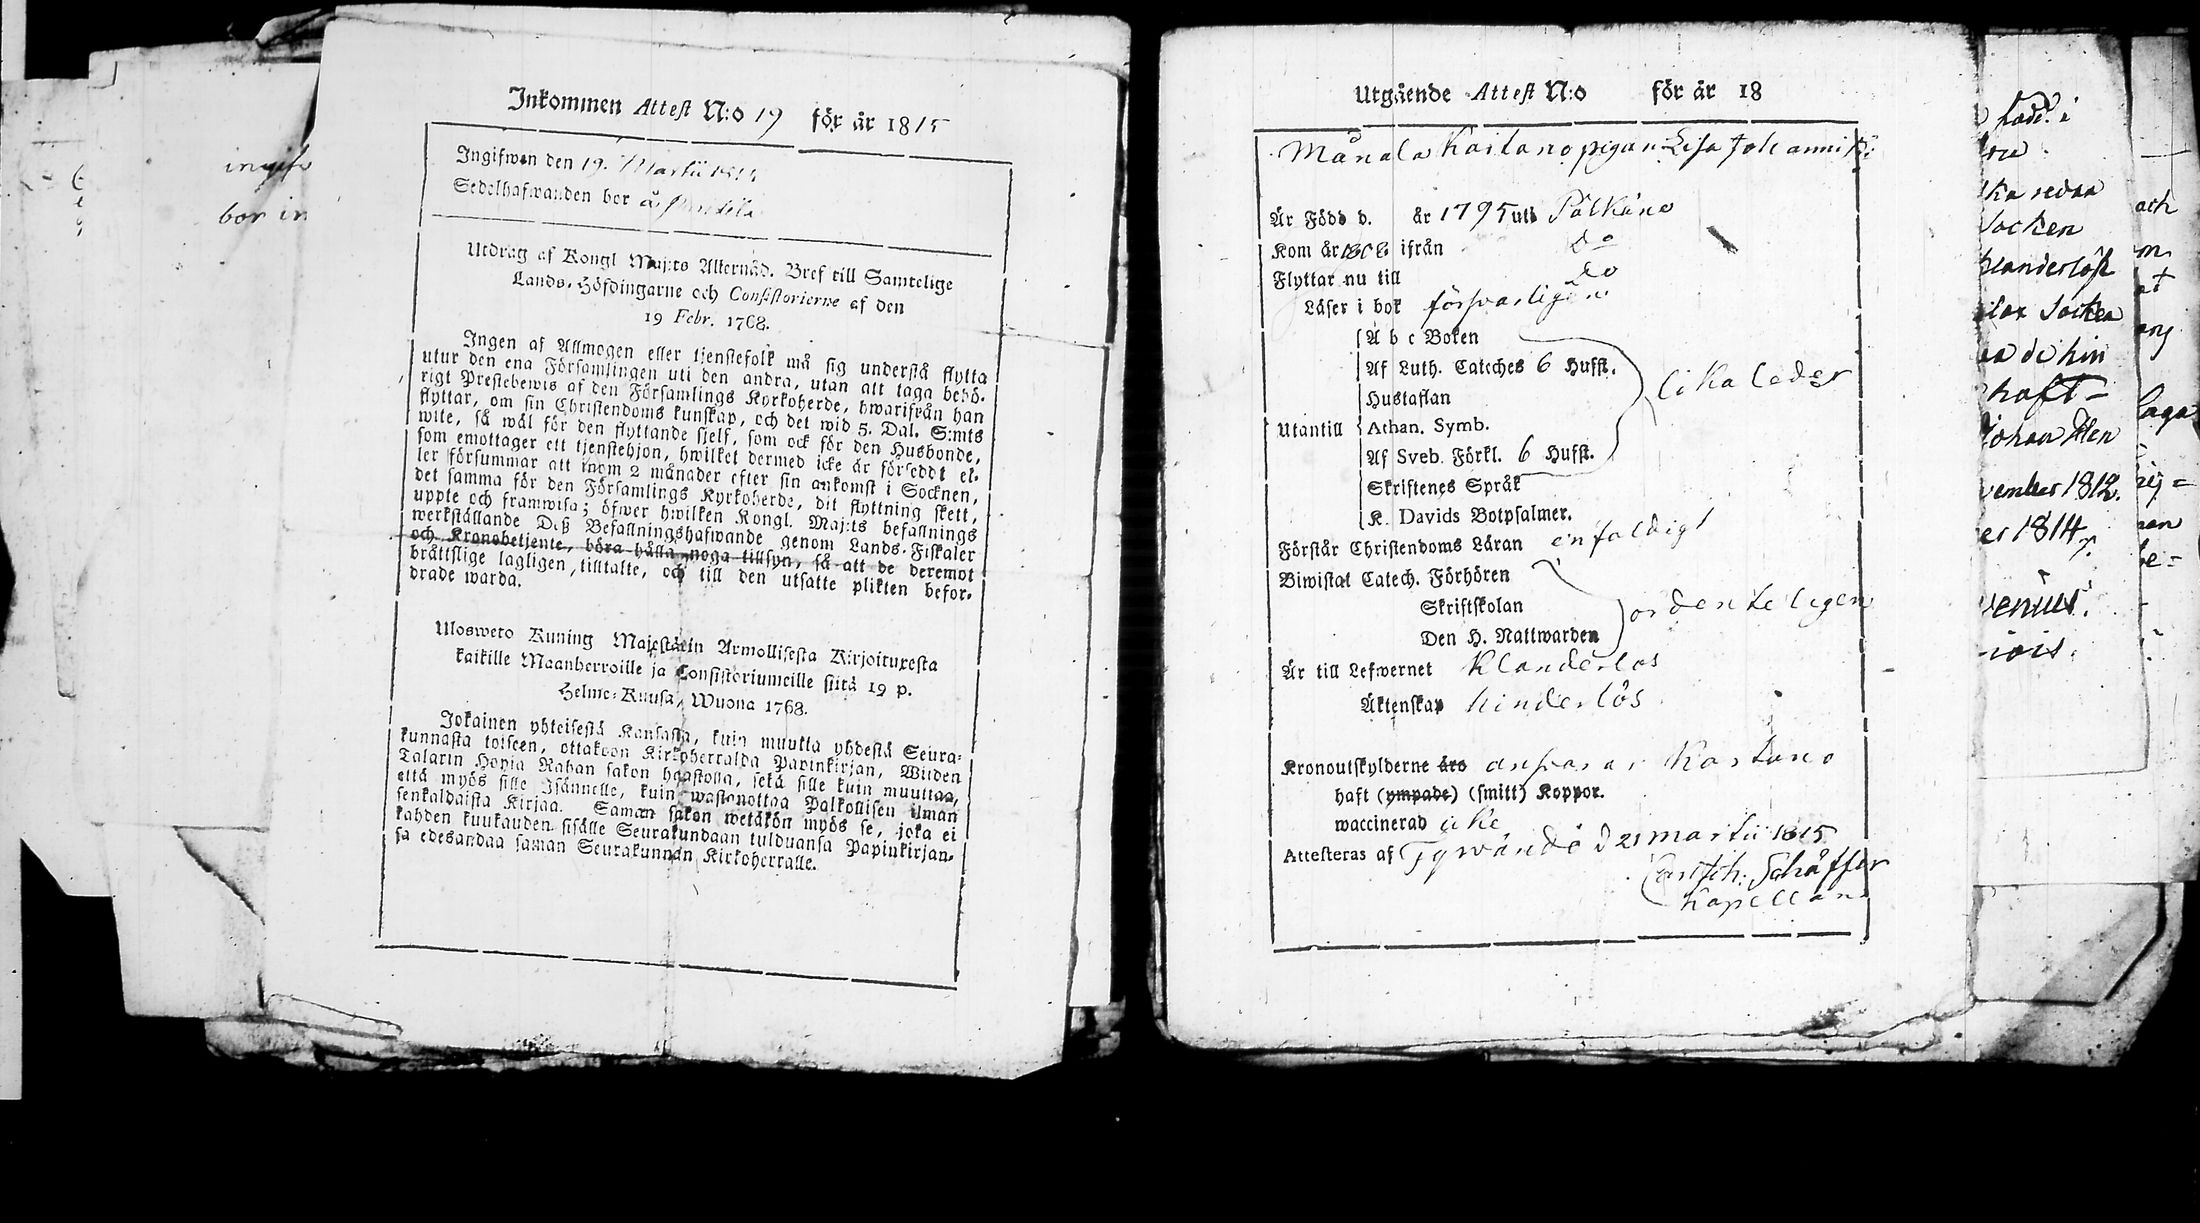 ingifv
bor in
Inkommen Attest N:o 19 för år 1815
Ingifwen den 19. Martii 1815
Sedelhafwanden bor å
Utdrag af Kongl Maj:ts Allernåd. Bref till Samtelige
Lands-Höfdingarne och Consistorierne af den
19 Febr. 1768.
Ingen af Allmogen eller tjenstefolk må sig understå flytta
utur den ena Församlingen uti den andra, utan att taga behö-
rigt Prestebewis af den Församlings Kyrkoherde, hwarifrån han
flyttar, om sin Christendoms kunskap, och det wid 5. Dal. S:mts
wite, så wäl för den flyttande sjelf, som ock för den Husbonde,
som emottager ett tjenstehjon, hwilket dermed icke är försedt el-
ler försummar att inom 2 månader efter sin ankomst i Socknen,
det samma för den Församlings Kyrkoherde, dit flyttning skett,
uppte och framwisa; öfwer hwilken Kongl. Maj:ts befallnings
werkställande Deß Befallningshafwande genom Lands-Fiskaler
och Kronobetjente, böra hålla noga tillsyn, så att de deremot
brättslige lagligen, tilltalte, och till den utsatte plikten befor-
drade warda.
Uloswero Kuning Majestätin Armollisesta Kirjoituxesta
kaikille Maanherroille ja Consistoriumeille siitä 19 p.
Helme-Kuusa, Wuona 1768.
Jokainen yhteisestä Kansasta, kuin muutta yhdestä Seura-
kunnasta toiseen, ottakoon Kirkoherralda Papinkirjan, Wiiden
Talarin Hopia Rahan sakon haastolla, sekä sille kuin muuttaa,
että myös sille Isännelle, kuin wastanottaa Palkollisen ilman
senkaldaista Kirjaa. Saman sakon wetäkön myös se, joka ei
kahden kuukauden sisälle Seurakundaan tulduansa Papinkirjan-
sa edesandaa saman Seurakunnan Kirkoherralle.
Utgående Attest N:o för år 18
Kartano pigan Lisa
Är Född d. år 1795 uti Pälkäne
Kom år 1808 ifrån do
Flyttar nu till do
Läser i bok försvarligen
Utantill
A b c Boken
Af Luth. Cateches 6 Hufst.
Hustaflan
Athan. Symb.
Af Sveb. Förkl. 6 Hufst.
Skriftenes Språk
K. Davids Botpsalmer.
lika leder
Förstår Christendoms Läran enfaldigt
Biwistat Catech. Förhören
Skriftskolan
Den H. Nattwarden
ordenteligen
Är till Lefwernet klanderlös
Äktenskap hinderlös
Kronoutskylderne års ansvarar Kartano
haft (ympade) (smitt) Koppor.
waccinerad
Attesteras af Tyrwändö d 21 martii 1815
Schäffer
Kapellan
född i
ka redan
Socken
klanderlöst
Socken
de hin
haft
Johan
vember 1812.
er 1814
och